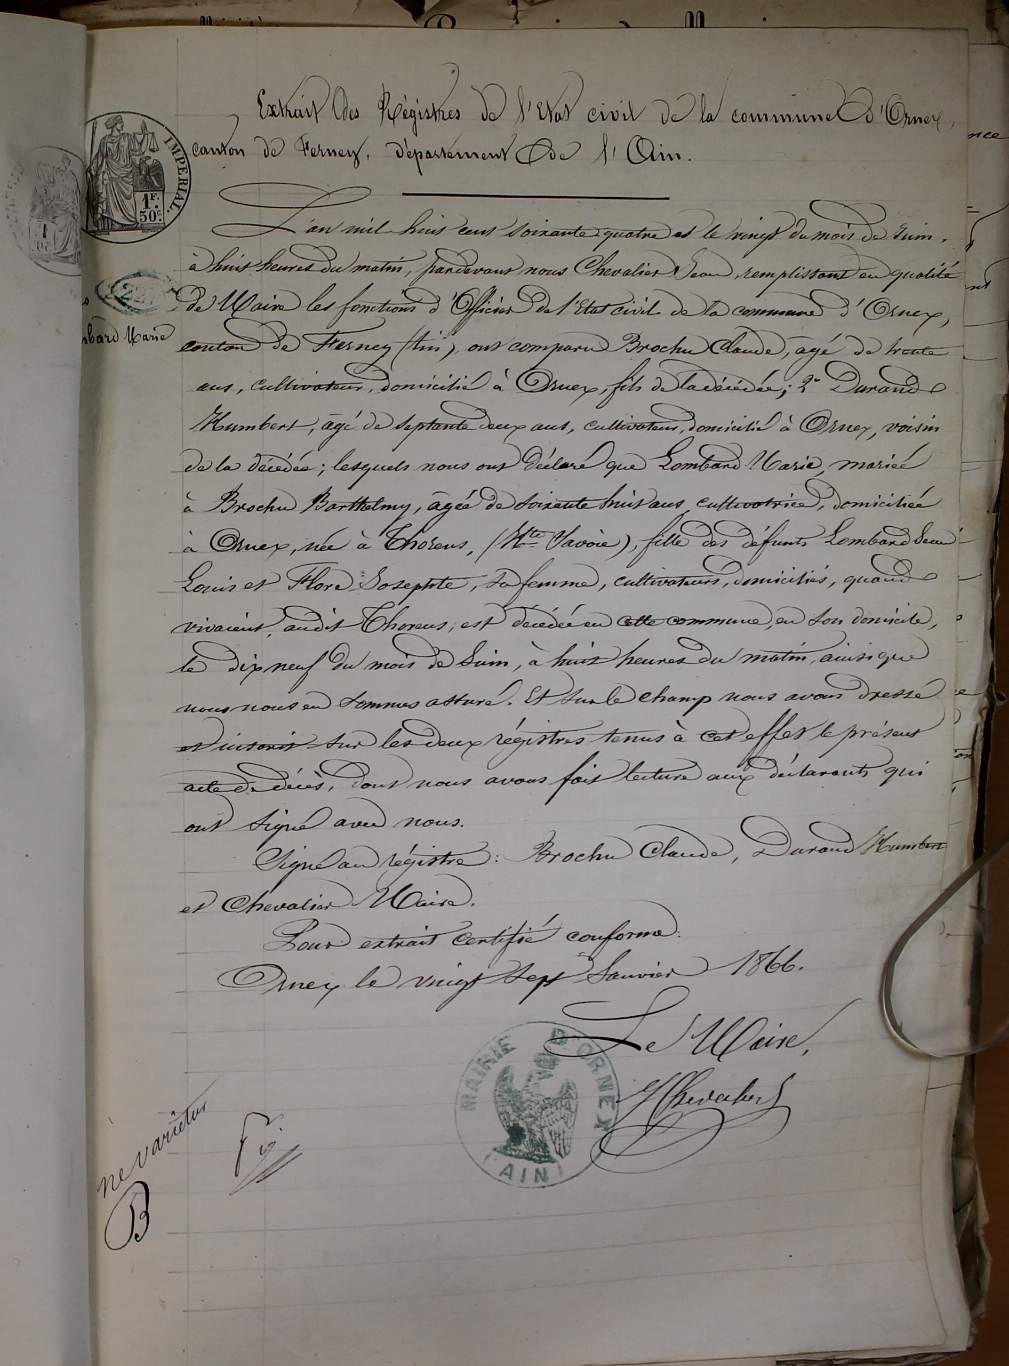 Extrait des Régistres de l'Etat civil de la commune d'Ornex,
canton de Ferney, département de l'Ain.
IMPERIAL
1F.
50c.
L'an mil huit cent soixante quatre et le vingt du mois de Juin,
à huit heures du matin, pardevant nous Chevalier Jean, remplissant en qualité
de Maire les fonctions d'Officier de l'Etat civil de la commune d'Ornex,
bard Marie
canton de Ferney (Ain), ont comparu Brochu Claude, âgé de trente
ans, cultivateur, domicilié à Ornex, fils de la décédée; 2° Durand
Humbert, âgé de septante deux ans, cultivateur, domicilié à Ornex, voisin
de la décédée; lesquels nous ont déclaré que Lombard Marie, mariée
à Brochu Barthelmy, âgée de soixante huit ans, cultivatrice, domiciliée
à Ornex, née à Thorens, (Hte Savoie), fille des défunts Lombard Jean
Louis et Flore Josephte, sa femme, cultivateurs, domiciliés, quand
vivaient, audit Thorens, est décédée en cette commune, en son domicile,
le dix neuf du mois de Juin, à huit heures du matin, ainsi que
nous nous en sommes assuré. Et sur le champ nous avons dressé
et inscrit sur les deux régistres tenus à cet effet le présent
acte de décès, dont nous avons fait lecture aux déclarants qui
ont signé avec nous.
Signé au régistre: Brochu Claude, Durand Humbert
et Chevalier Maire.
Pour extrait certifié conforme.
Ornex le vingt sept Janvier 1866.
Le Maire,
JChevalier
MAIRIE D'ORNEX
(AIN)
ne varietur
B